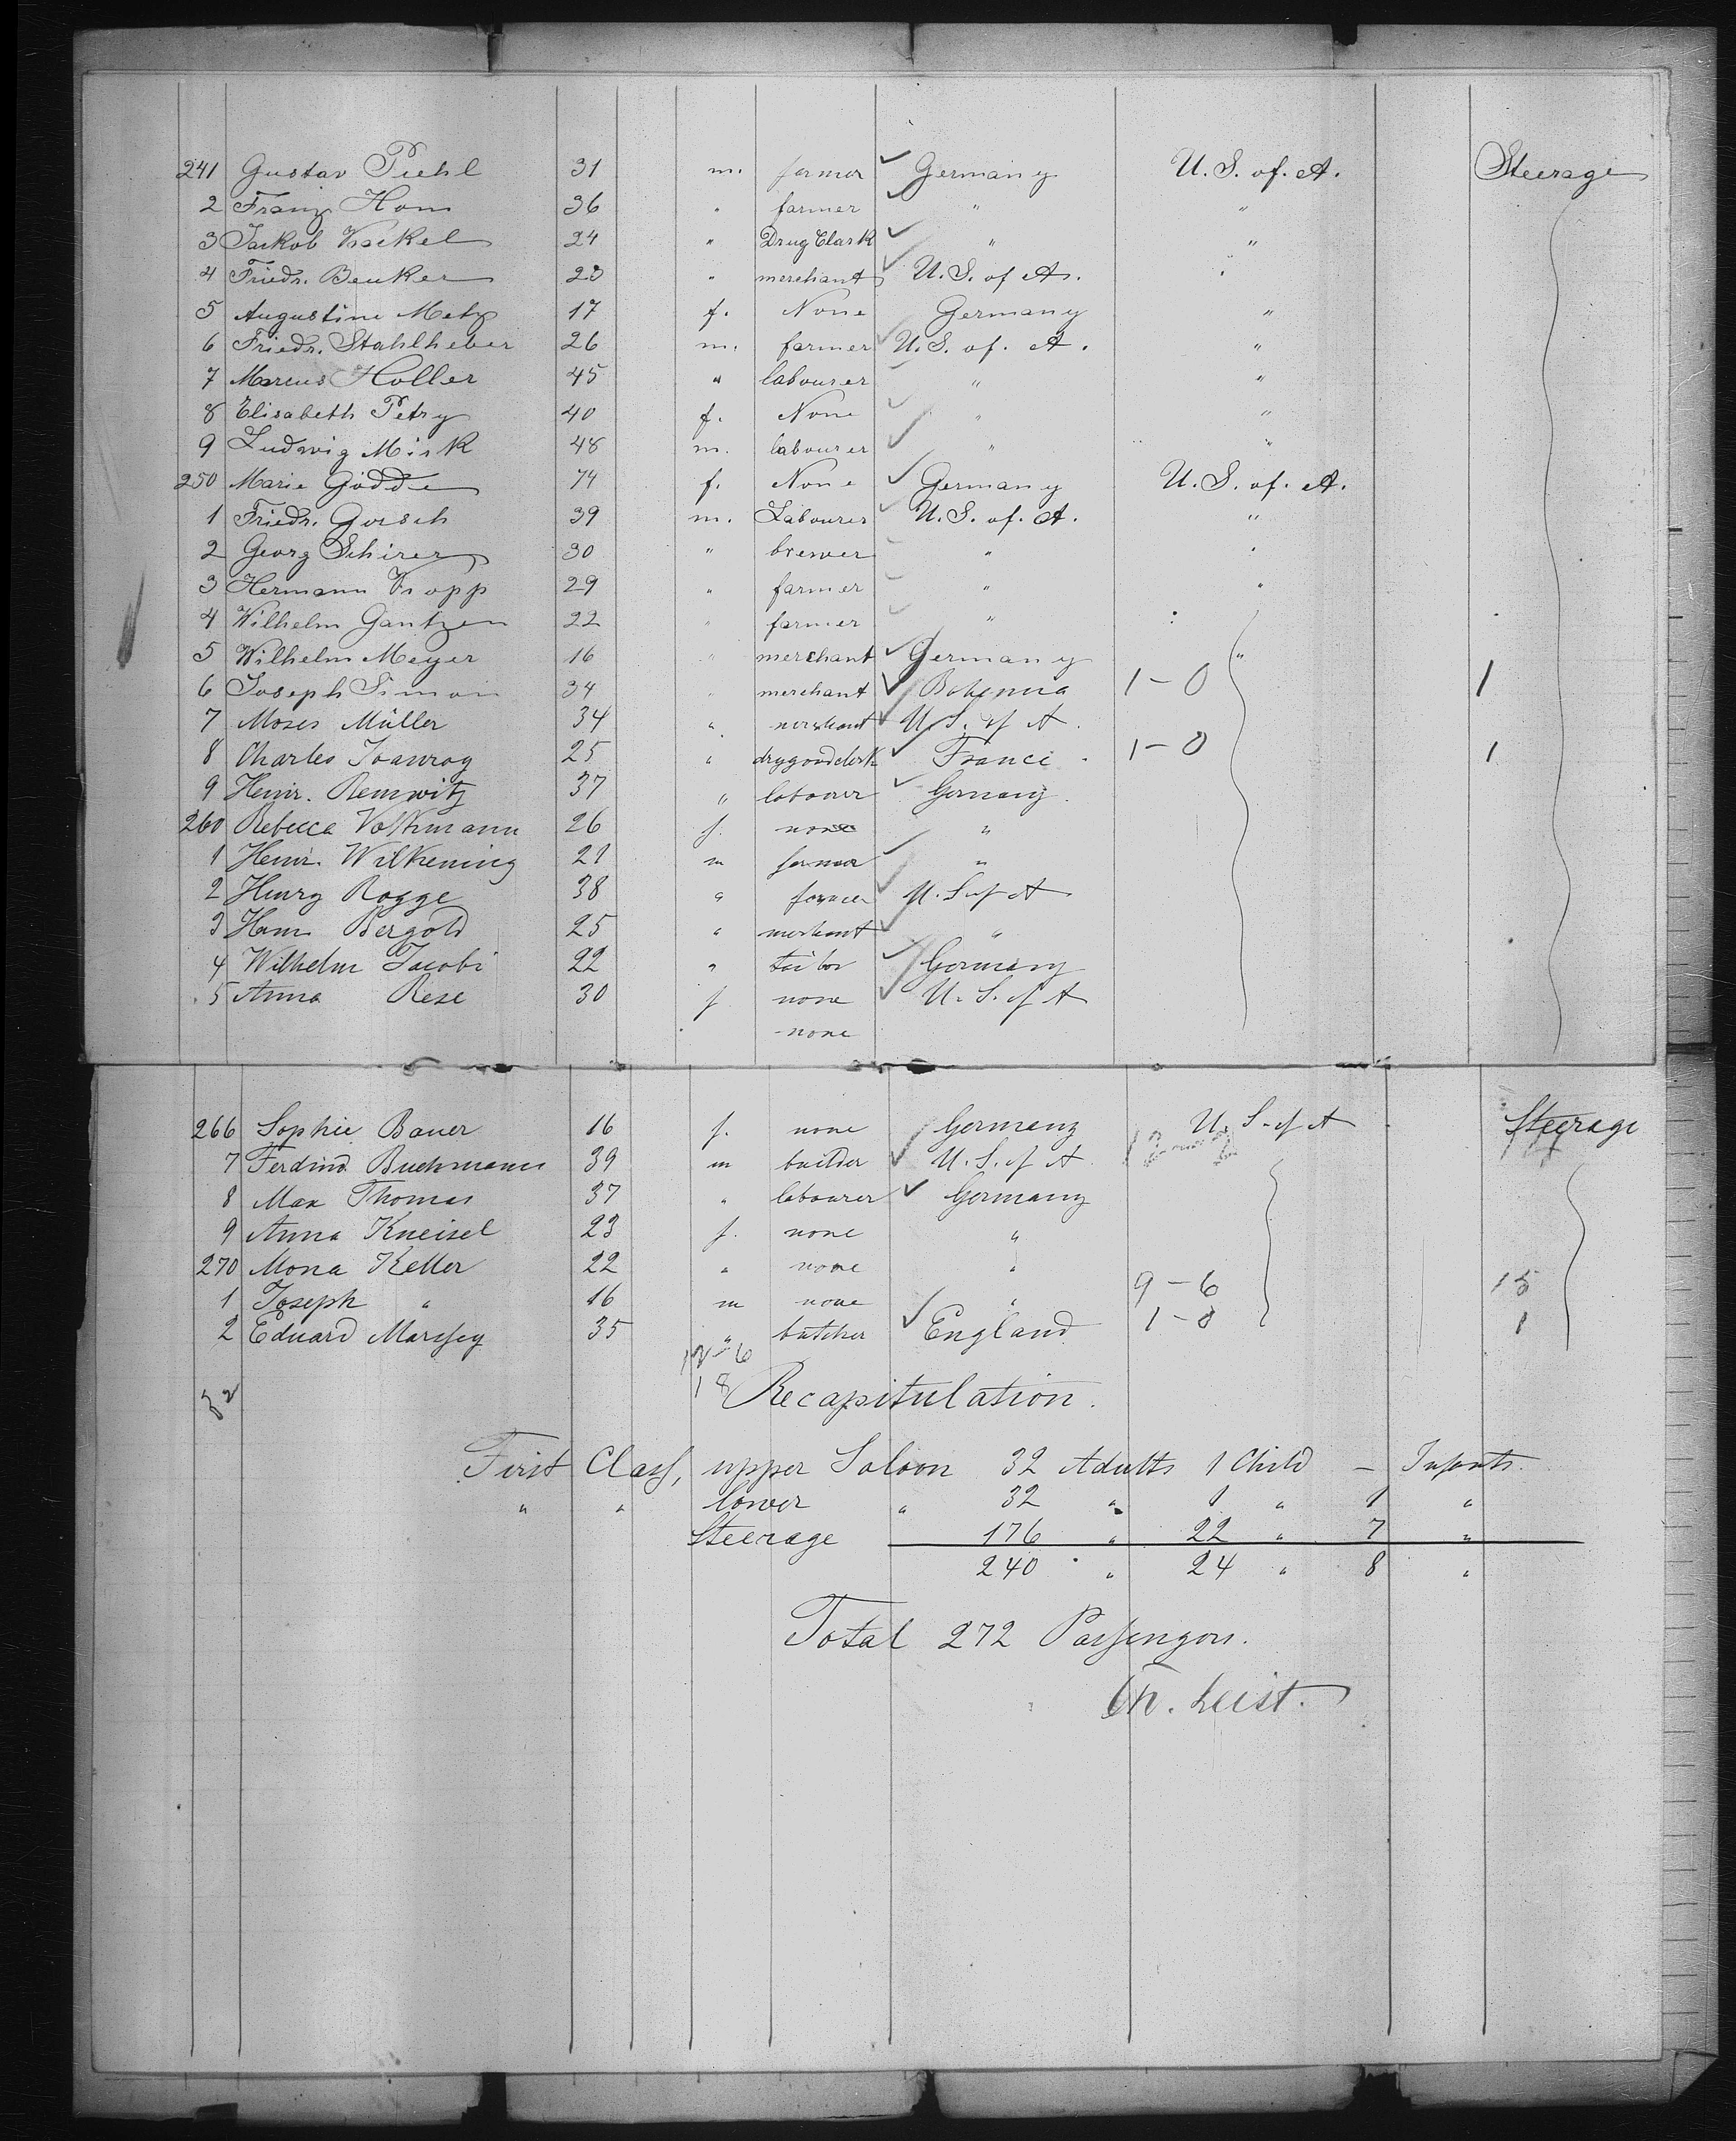 241 Gustav Piehl 31 m. farmer Germany U. S. of. A. Steerage
2 Franz Horn 36 " farmer " "
3 Jackob 24 " Drug Clark " "
4 Friedr. Beuker 23 " merchant U. S. of A. "
5 Augustine Metz 17 f. None Germany "
6 Friedr. Stahlheber 26 m. farmer U. S. of. A. "
7 Marcus Holler 45 " labourer " "
8 Elisabeth Petry 40 f. None " "
9 Ludwig Mink 48 m. labourer " "
250 Marie Gödde 74 f. None Germany U. S. of. A.
1 Friedr. Gorsch 39 m. Labourer U. S. of. A. "
2 Georg Schirer 30 " brewer " "
3 Hermann Kropp 29 " farmer " "
4 Wilhelm Gantzen 22 " farmer "
5 Wilhelm Meyer 16 " merchant Germany "
6 Joseph Simon 34 " merchant Bohemia 1-0 1
7 Moses Müller 34 " merchant U. S. of A.
8 Charles 25 " drygoodclerk France 1-0 1
9 Heinr. Remwitz 37 " labourer Germany
260 Rebecca Volkmann 26 f. none "
1 Heinr. Wilkening 21 m farmer "
2 Henry Rogge 38 " farmer U. S. of A
3 Hans Bergold 25 " merchant "
4 Wilhelm Jacobi 22 " tailor Germany
5 Anna Rese 30 f none U. S. of A
none
266 Sophie Bauer 16 f. none Germany U. S. of A Steerage
7 Ferdind. Buchmann 39 m builder U. S. of A.
8 Max Thomas 37 " labourer Germany
9 Anna Kneisel 23 f. none "
270 Mona Keller 22 " none "
1 Joseph " 16 m none " 9-6 15
2 Eduard Marssey 35 " butcher England 1-0 1
12-6
18
Recapitulation.
First Class, upper Saloon 32 Adults 1 Child - Infants.
" " lower " 32 " 1 " 1 "
Steerage 176 " 22 " 7 "
240 " 24 " 8 "
Total 272 Passengers.
Ch. Leist.